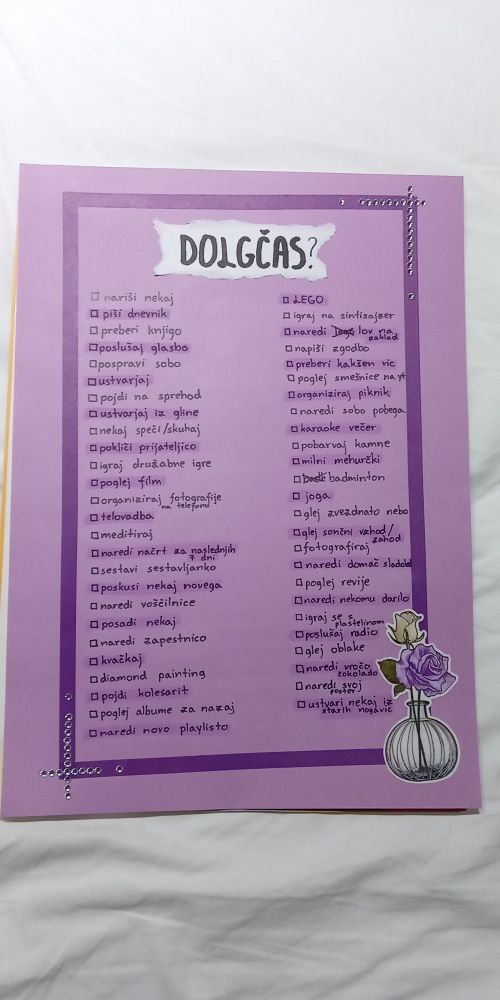 DOLGČAS?
nariši nekaj
piši dnevnik
preberi knjigo
poslušaj glasbo
pospravi sobo
ustvarjaj
pojdi na sprehod
ustvarjaj iz gline
nekaj speči/skuhaj
pokliči prijateljico
igraj družabne igre
poglej film
organiziraj fotografije
na telefonu
telovadba
meditiraj
naredi načrt za naslednjih
7 dni
sestavi sestavljanko
poskusi nekaj novega
naredi voščilnice
posadi nekaj
naredi zapestnico
kvačkaj
diamond painting
pojdi kolesarit
poglej albume za nazaj
naredi novo playlisto
LEGO
igraj na sintisajzer
naredi lov na
zaklad
napiši zgodbo
preberi kakšen vic
poglej smešnice na yt
organiziraj piknik
naredi sobo pobega
karaoke večer
pobarvaj kamne
milni mehurčki
badminton
joga
glej zvezdnato nebo
glej sončni vzhod/
zahod
fotografiraj
naredi domač sladoled
poglej revije
naredi nekomu darilo
igraj se s
plastelinom
poslušaj radio
glej oblake
naredi vročo
čokolado
naredi svoj
poster
ustvari nekaj iz
starih nogavic